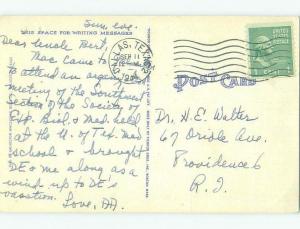 Sun. eve.
THIS SPACE FOR WRITING MESSAGES
Dear Uncle Bert,
Mac came to
to attend an
meeting of the Southwest
Section of the Society of
Exp. Biol. & Med. held
at the U. of Tex. Med.
school & brought
DE & me along as a
wind up to DE's
vacation. Love,
AS, TEX
SEP 11
POST CARD
Dr. H. E. Walter
67 Oriole Ave.
Providence 6
R. I.